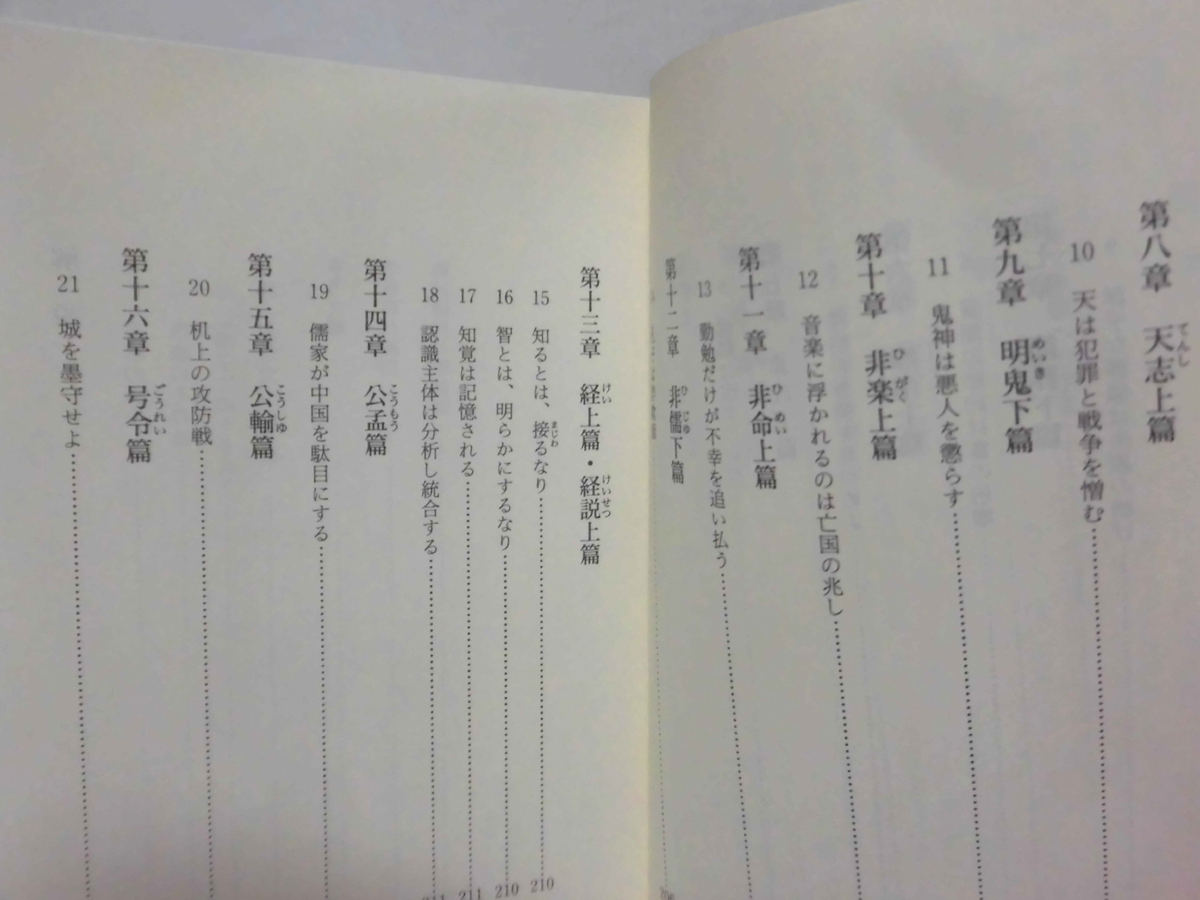 第八章 天志上篇
てんし
10 天は犯罪と戦争を憎む
第九章 明鬼下篇
めいき
11 鬼神は悪人を懲らす
第十章 非楽上篇
ひがく
12 音楽に浮かれるのは亡国の兆し
第十一章 非命上篇
ひめい
13 勤勉だけが不幸を追い払う
第十二章 非儒下篇
ひじゅ
第十三章 経上篇・経説上篇
けい けいせつ
15 知るとは、接るなり 210
まじわ
16 智とは、明らかにするなり 210
17 知覚は記憶される 211
18 認識主体は分析し統合する
第十四章 公孟篇
こうもう
19 儒家が中国を駄目にする
第十五章 公輸篇
こうしゆ
20 机上の攻防戦
第十六章 号令篇
ごうれい
21 城を墨守せよ